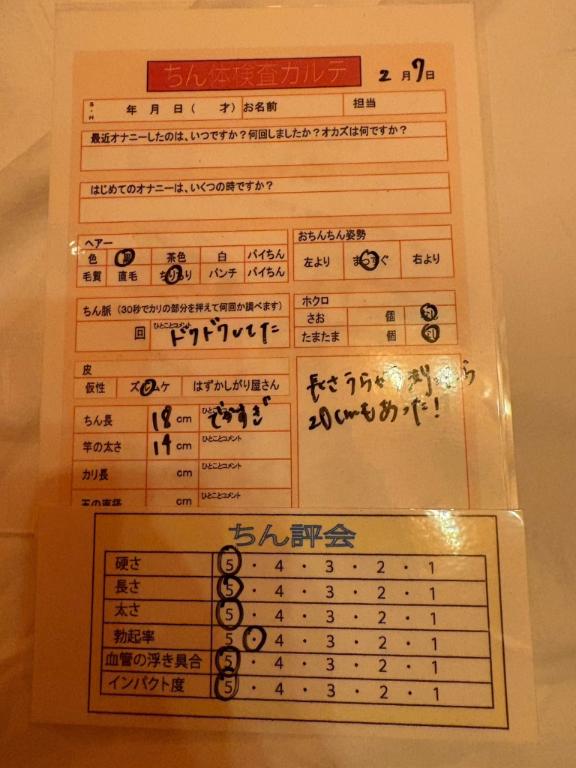 ちん体検査カルテ
2月7日
S・H 年 月 日( 才) お名前 担当
最近オナニーしたのは、いつですか?何回しましたか?オカズは何ですか?
はじめてのオナニーは、いくつの時ですか?
ヘアー
色 茶色 白 パイちん
毛質 直毛 ちぢり パンチ パイちん
おちんちん姿勢
左より まっすぐ 右より
ちん脈 (30秒でカリの部分を押えて何回か調べます)
回 ひとことコメント ドクドクしてた
ホクロ
さお 個
たまたま 個
皮
仮性 ズルムケ はずかしがり屋さん
ちん長 18 cm ひとことコメント でかすぎ
竿の太さ 14 cm ひとことコメント
カリ長 cm ひとことコメント
玉の直径 cm ひとことコメント
長さうら
20cmもあった!
ちん評会
硬さ 5・4・3・2・1
長さ 5・4・3・2・1
太さ 5・4・3・2・1
勃起率 5・4・3・2・1
血管の浮き具合 5・4・3・2・1
インパクト度 5・4・3・2・1